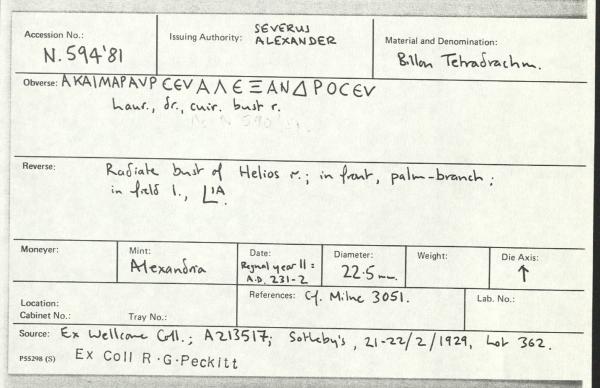 Accession No.: N.594'81
Issuing Authority: SEVERUS
ALEXANDER
Material and Denomination:
Billon Tetradrachm.
Obverse: ΑΚΑΙΜΑΡΑVΡ CЄVΑΛЄΞΑΝΔΡΟCЄV
Laur., dr., cuir. bust r.
Reverse: Radiate bust of Helios r.; in front, palm-branch;
in field l., LΙΑ.
Moneyer:
Mint:
Alexandria
Date:
Regnal year 11 =
A.D. 231-2
Diameter:
22.5mm.
Weight:
Die Axis:
↑
Location:
Cabinet No.: Tray No.:
References: Cf. Milne 3051.
Lab. No.:
Source: Ex Wellcome Coll.; A213517; Sotheby's, 21-22/2/1929, Lot 362.
P55298 (S) Ex Coll R·G·Peckitt